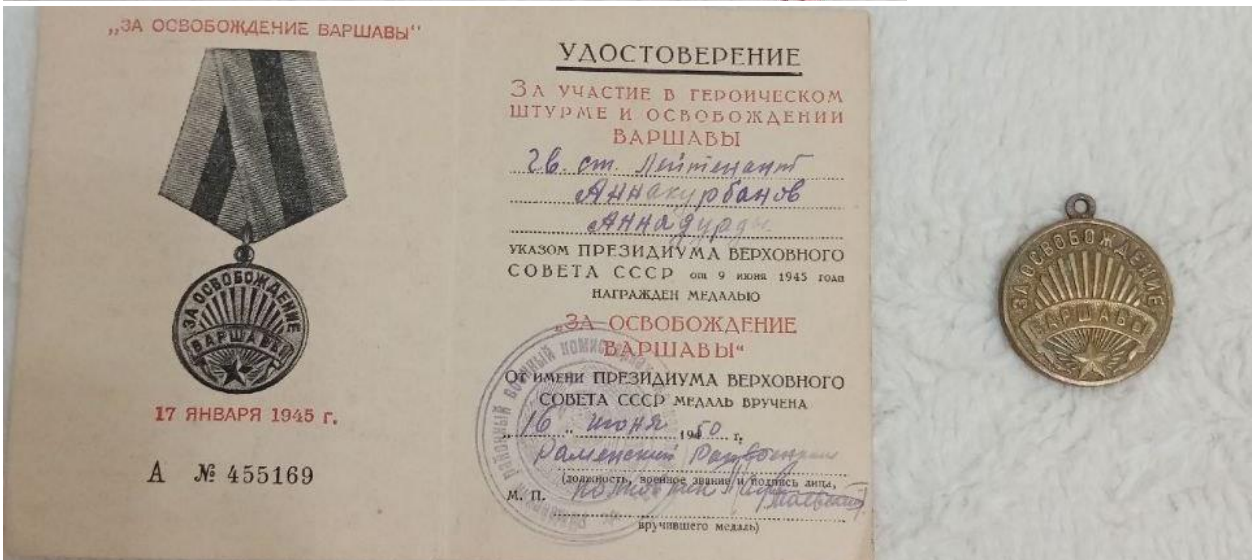 „ЗА ОСВОБОЖДЕНИЕ ВАРШАВЫ"
ЗА ОСВОБОЖДЕНИЕ
ВАРШАВЫ
17 ЯНВАРЯ 1945 г.
А № 455169
УДОСТОВЕРЕНИЕ
ЗА УЧАСТИЕ В ГЕРОИЧЕСКОМ
ШТУРМЕ И ОСВОБОЖДЕНИИ
ВАРШАВЫ
Гв. ст. Лейтенант
Аннакурбанов
Аннадурды
УКАЗОМ ПРЕЗИДИУМА ВЕРХОВНОГО
СОВЕТА СССР от 9 июня 1945 года
НАГРАЖДЕН МЕДАЛЬЮ
„ЗА ОСВОБОЖДЕНИЕ
ВАРШАВЫ“
ОТ ИМЕНИ ПРЕЗИДИУМА ВЕРХОВНОГО
СОВЕТА СССР МЕДАЛЬ ВРУЧЕНА
„16 „ июня 1950 г.
Раменский
(должность, военное звание и подпись лица,
М. П.
вручившего медаль)
РАЙОННЫЙ ВОЕННЫЙ
ЗА ОСВОБОЖДЕНИЕ
ВАРШАВЫ